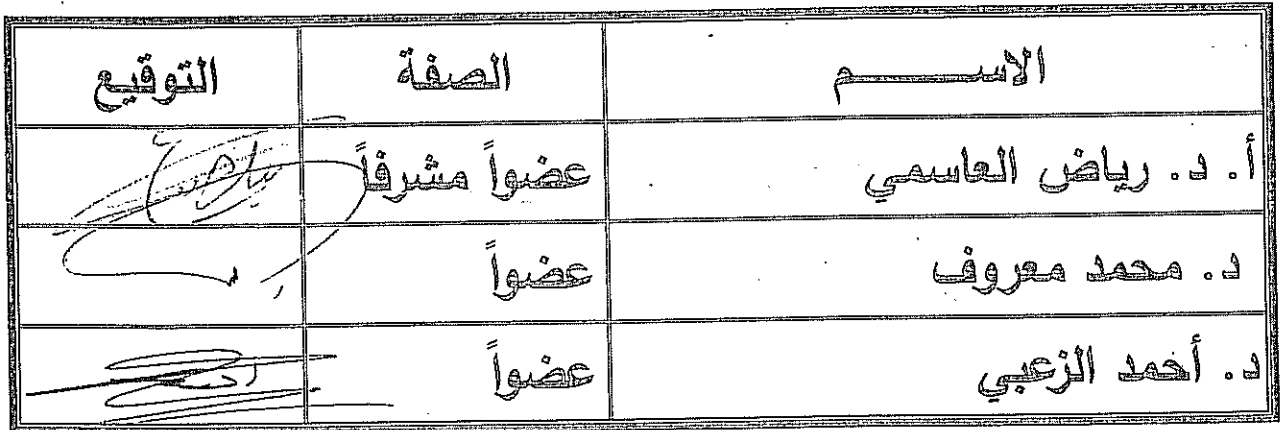 الاســـــــم الصفة التوقيع
أ. د. رياض العاسمي عضواً مشرفاً
د. محمد معروف عضواً
د. أحمد الزعبي عضواً